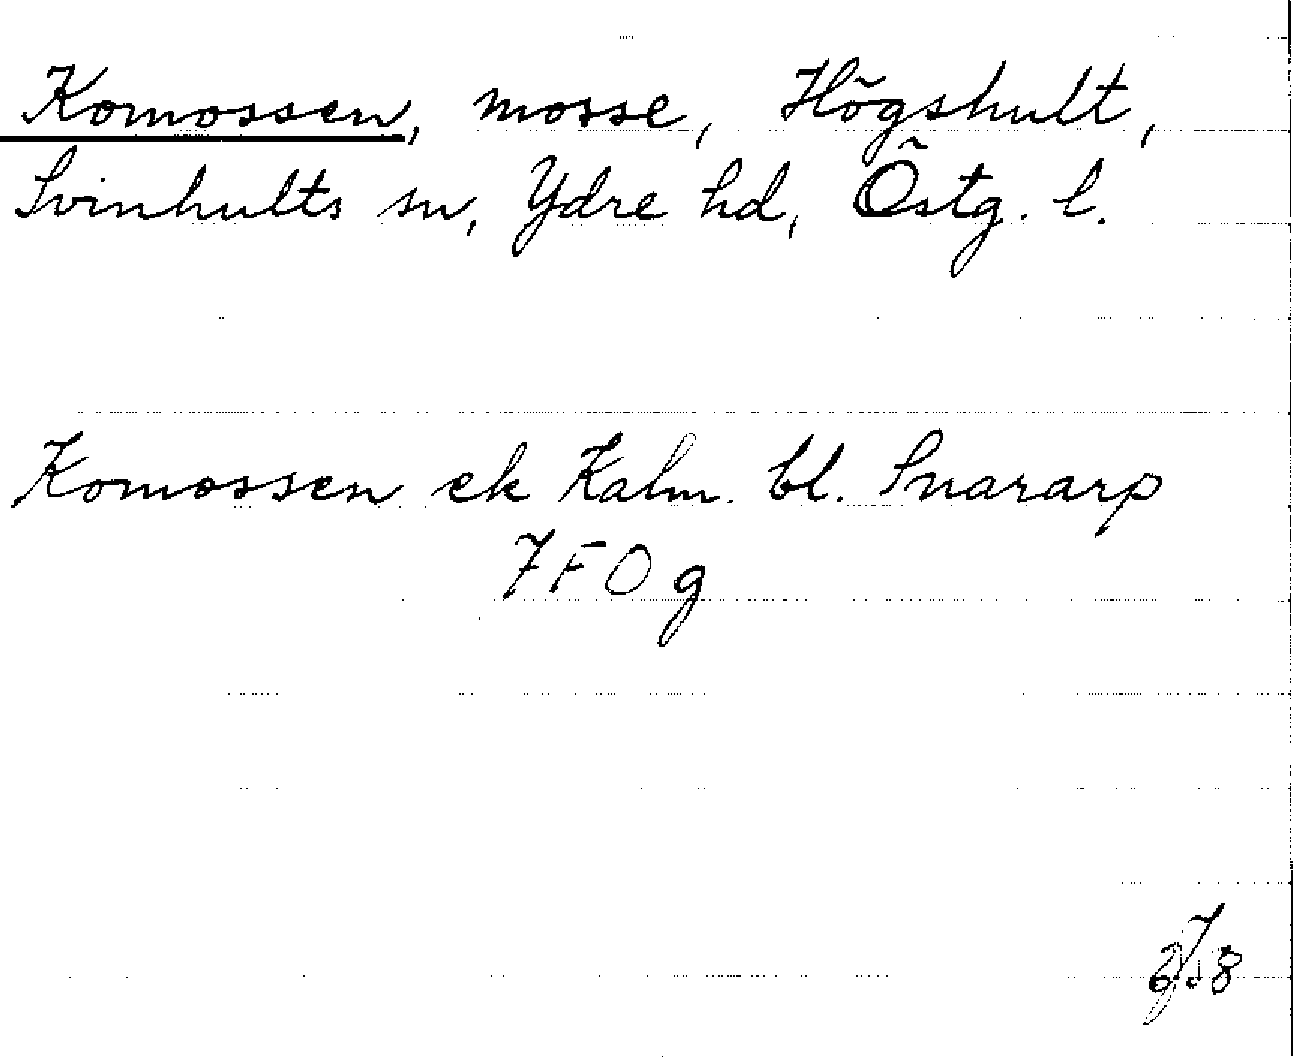 Komossen, mosse, Högshult,
Svinhults sn, Ydre hd, Östg. l.
Komossen ek Kalm. bl. Snararp
7 F O g